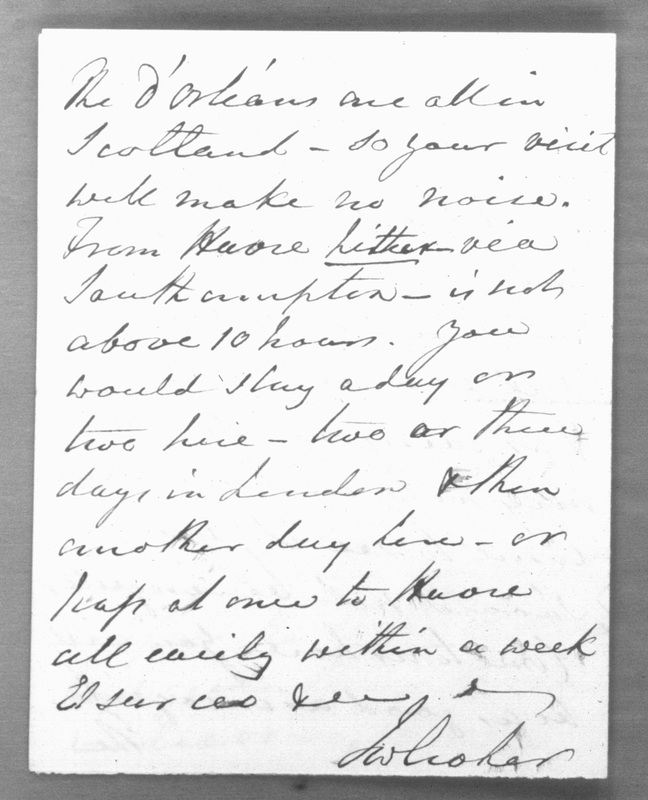 The D'Orléans are all in
Scotland – so your visit
will make no noise.
From Havre hither via
Southampton – is not
above 10 hours. You
would stay a day or
two here – two or three
days in London & then
another day here – or
pass at once to Havre
all easily within a week
Et sur ceo &c
JWCroker